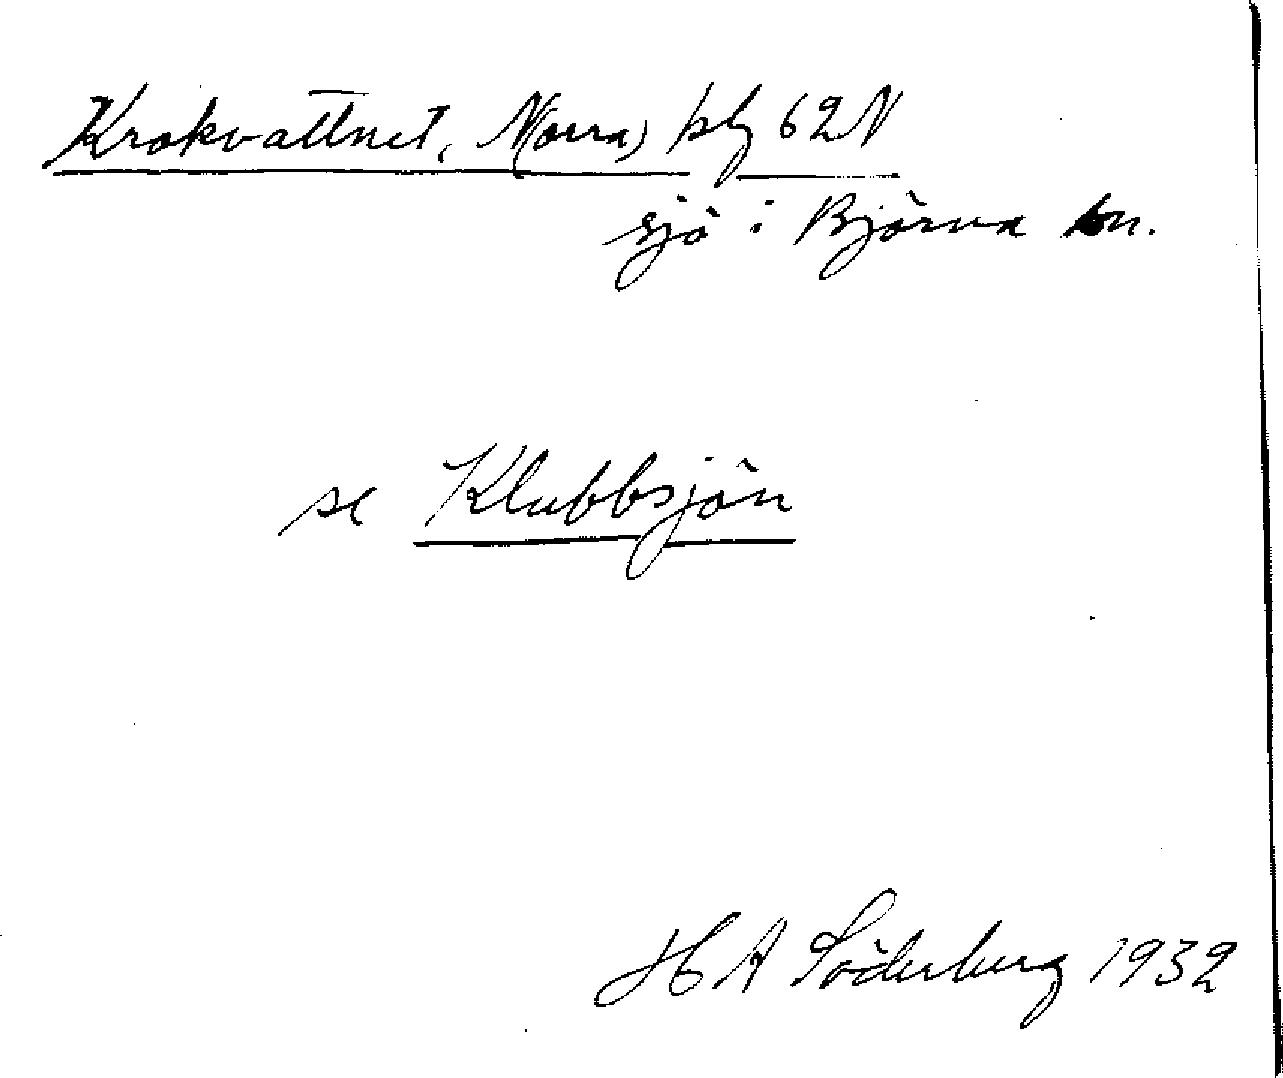 Krokvattnet, Norra, kbl 62N
sjö i Björna sn.
se Klubbsjön
H A Söderberg 1932